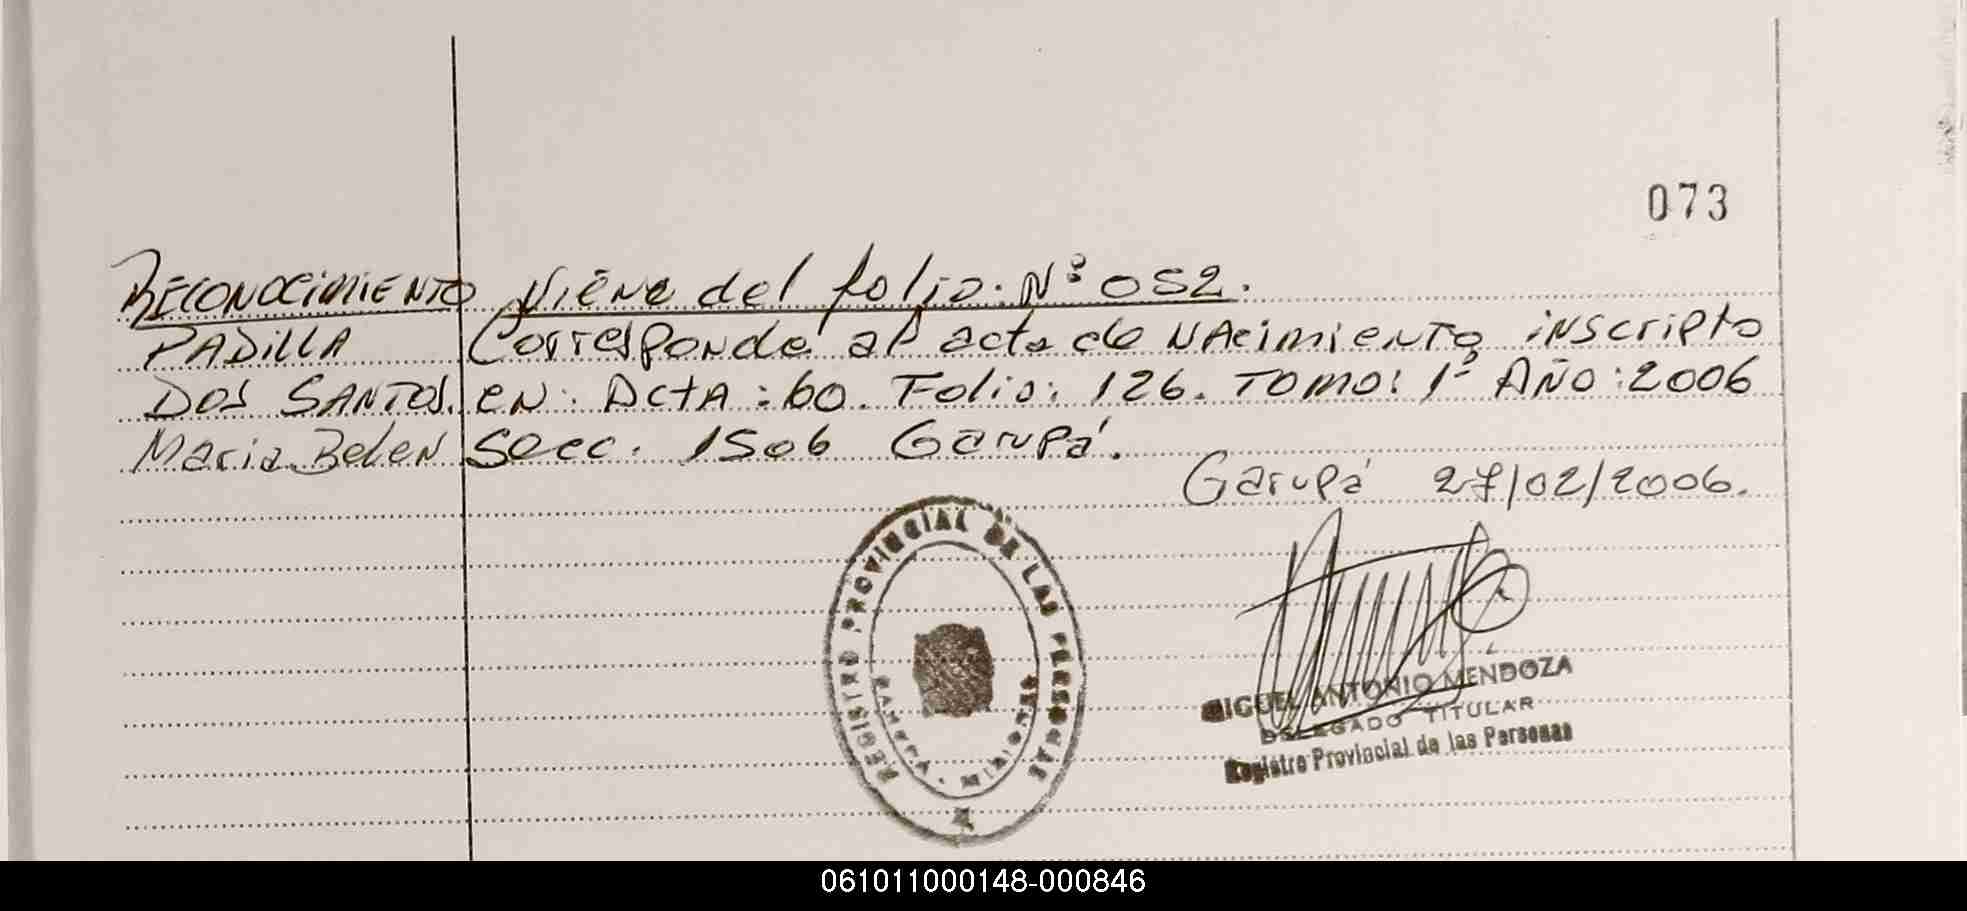 073
RECONOCIMIENTO Viene del folio. Nº 052.
PADILLA Corresponde al acta de NACIMIENTO inscripto
DOS SANTOS. EN: ACTA: 60. Folio: 126. TOMO: 1º AÑO: 2006
Maria Belen secc. 1506 Garupá.
Garupá 27/02/2006.
REGISTRO PROVINCIAL DE LAS PERSONAS
MISIONES
MIGUEL ANTONIO MENDOZA
DELEGADO TITULAR
Registro Provincial de las Personas
061011000148-000846